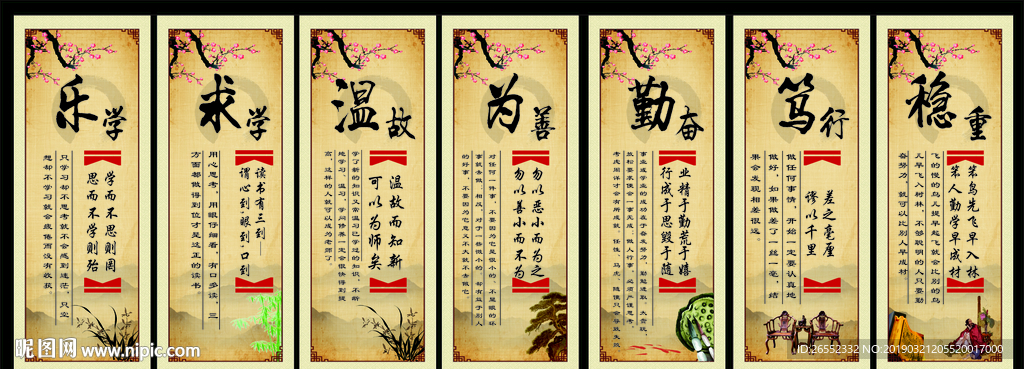 乐学
学而不思则罔
思而不学则殆
只学习却不思考就不会感到迷茫，只空
想却不学习就会疲倦而没有收获。
求学
读书有三到——
谓心到·眼到·口到
用心思考，用眼仔细看，有口多读，三
方面都做得到位才是这正的读书。
温故
温故而知新
可以为师矣
学了新的知识又常温习已学过的知识，不断
地学习，温习，学问修养一定会很快得到提
高，这样的人就可以成为老师了。
为善
勿以恶小而为之
勿以善小而不为
对任何一件事，不要因为它是很小的、不显眼的坏
事就去做，相反，对于一些微小的，却有益于别人
的好事，不要因为它意义不大就不去做它。
勤奋
业精于勤荒于嬉
行成于思毁于随
笃行
差之毫厘
谬以千里
做任何事情，开始一定要认真地
做好，如果做差了一丝一毫，结
果会发现相差很远。
稳重
笨鸟先飞早入林
笨人勤学早成材
飞的慢的鸟儿提早起飞就会比别的鸟
儿早飞入树林，不够聪明的人只要勤
奋努力，就可以比别人早成材。
昵图网 www.nipic.com
ID:26552332 NO:20190321205520017000